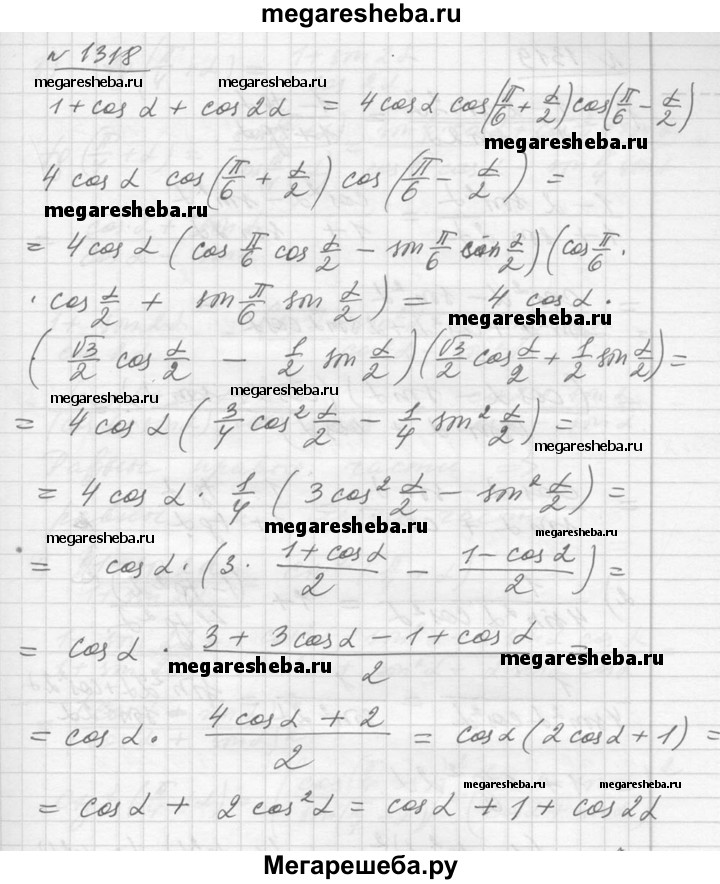 megaresheba.ru
№ 1318
megaresheba.ru megaresheba.ru
1 + cos α + cos 2α = 4 cos α cos(π/6 + α/2) cos(π/6 − α/2)
megaresheba.ru
4 cos α cos(π/6 + α/2) cos(π/6 − α/2) =
megaresheba.ru
= 4 cos α (cos π/6 cos α/2 − sin π/6 sin α/2)(cos π/6 ·
· cos α/2 + sin π/6 sin α/2) = 4 cos α ·
megaresheba.ru
(√3/2 cos α/2 − 1/2 sin α/2)(√3/2 cos α/2 + 1/2 sin α/2) =
megaresheba.ru megaresheba.ru
= 4 cos α (3/4 cos² α/2 − 1/4 sin² α/2) =
megaresheba.ru
= 4 cos α · 1/4 (3 cos² α/2 − sin² α/2) =
megaresheba.ru megaresheba.ru megaresheba.ru
= cos α · (3 · (1 + cos α)/2 − (1 − cos α)/2) =
= cos α · (3 + 3 cos α − 1 + cos α)/2 =
megaresheba.ru megaresheba.ru
= cos α · (4 cos α + 2)/2 = cos α (2 cos α + 1) =
megaresheba.ru megaresheba.ru
= cos α + 2 cos² α = cos α + 1 + cos 2α
Мегарешеба.ру